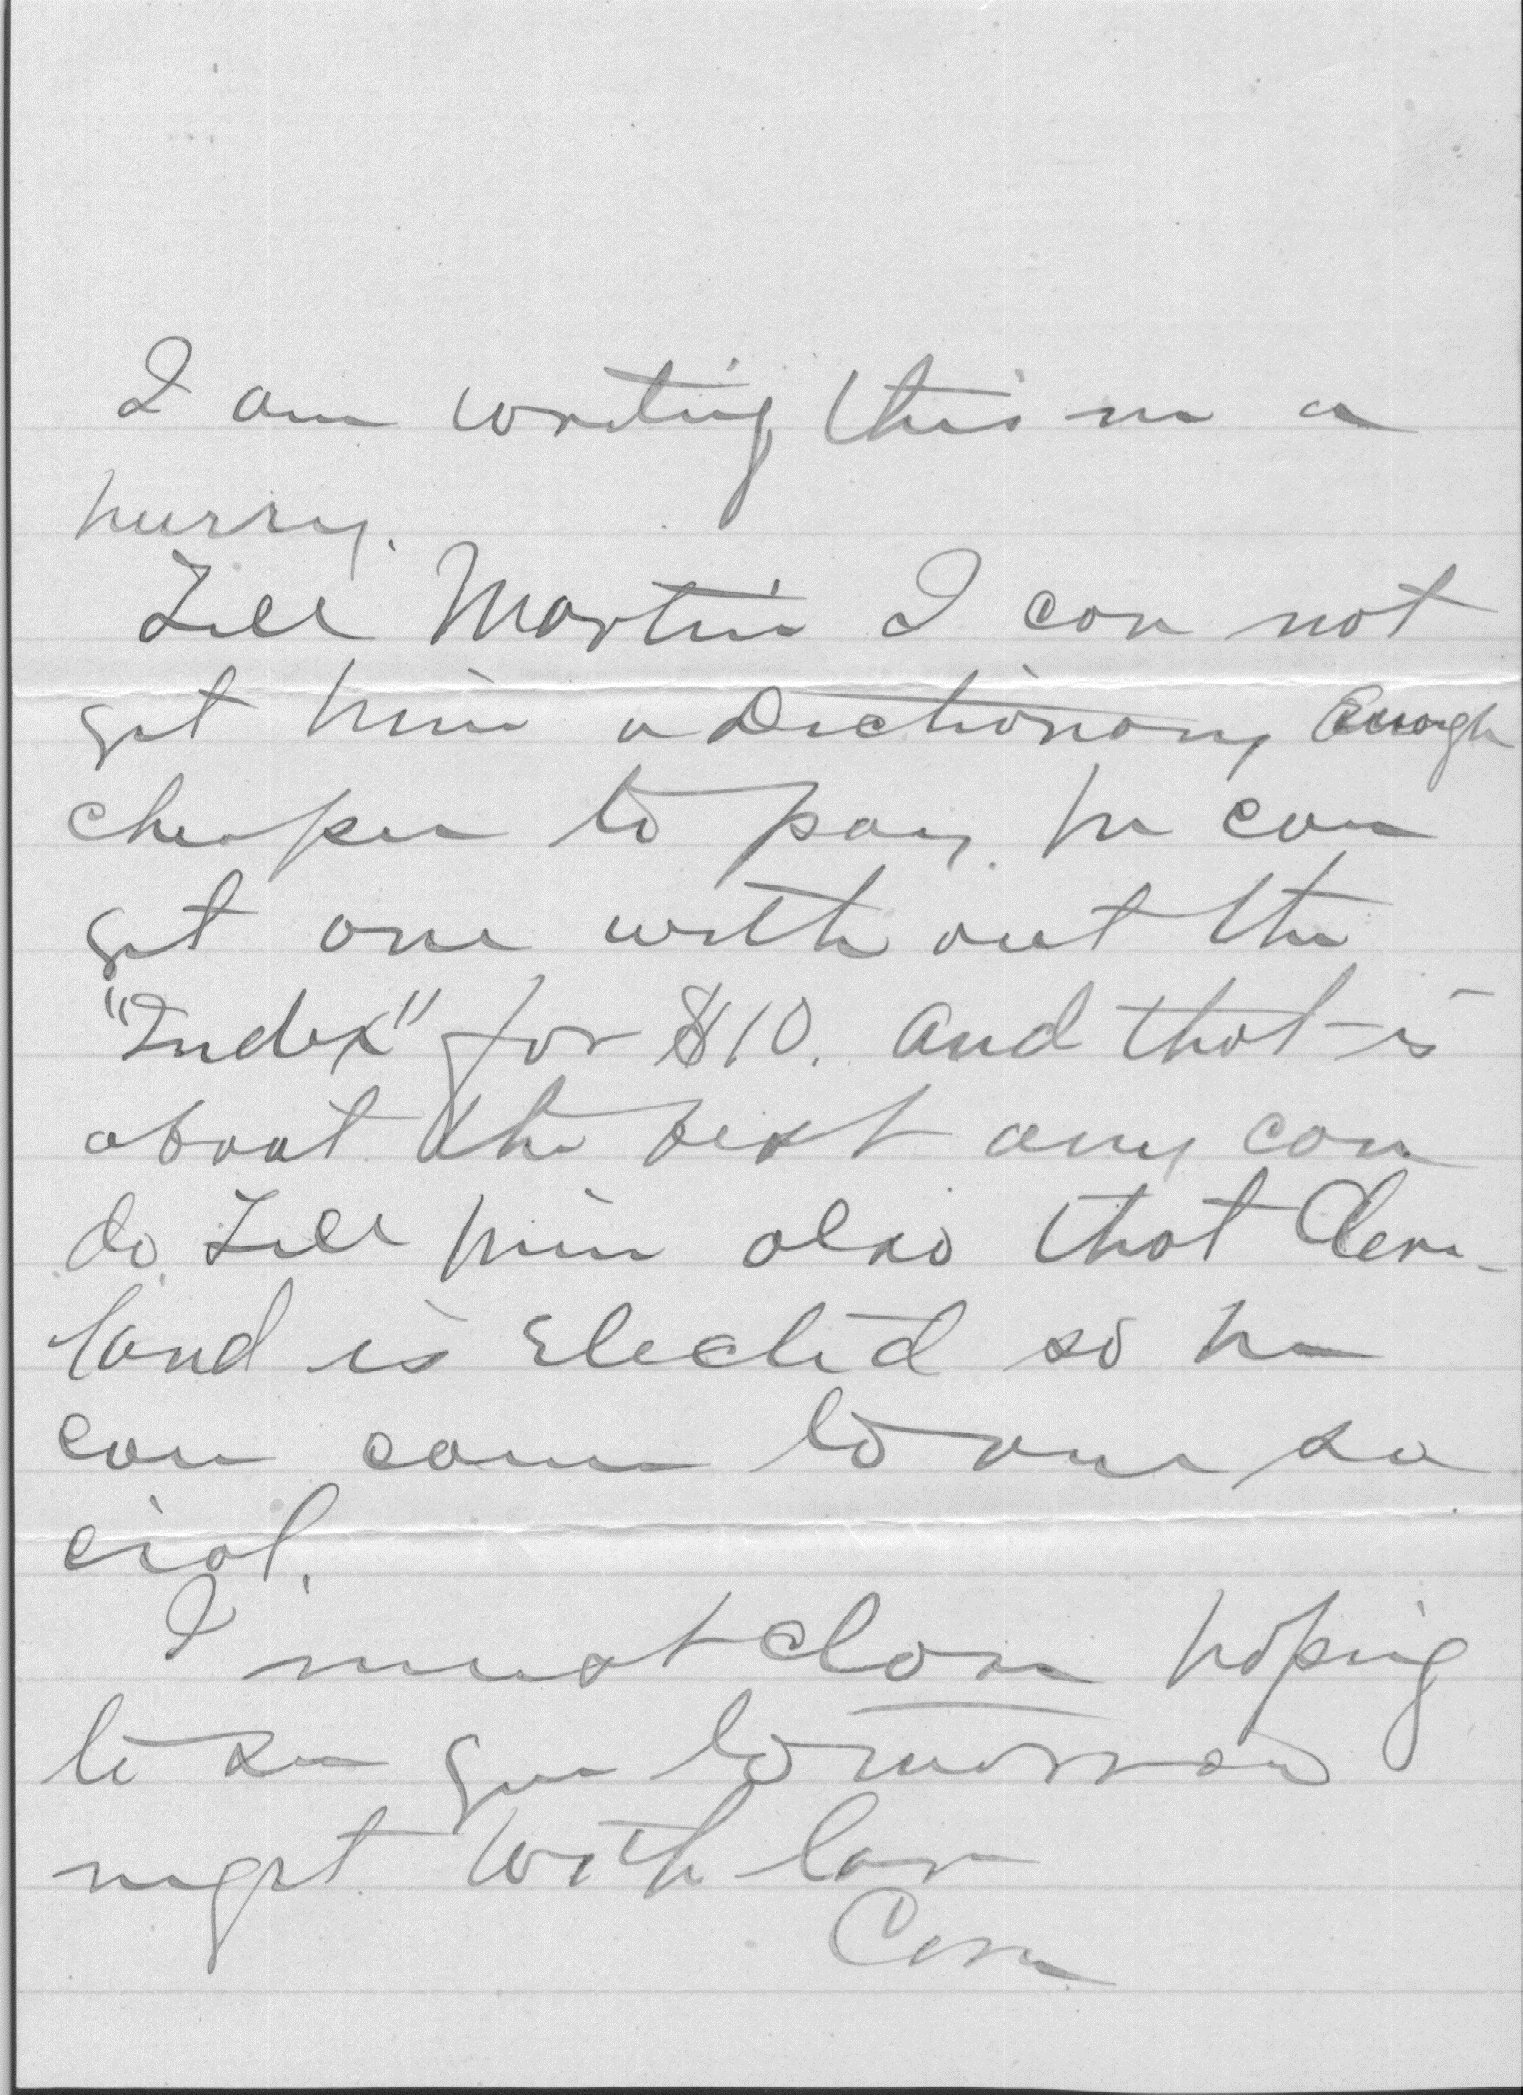 I am writing this in a
hurry.
Tell Martin I can not
get him a Dictionary Enough
cheaper to pay. he can
get one with out the
"Index" for $10. and that is
about the best any can
do. Tell him also that Cleve-
land is Elected so he
can come to our so
cial.
I must close hoping
to see you tomorrow
night with love